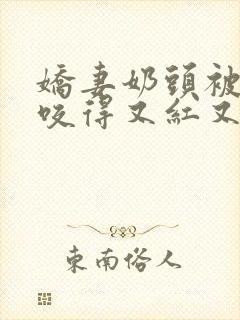 嬌妻奶頭被
咬得又紅又
东南俗人